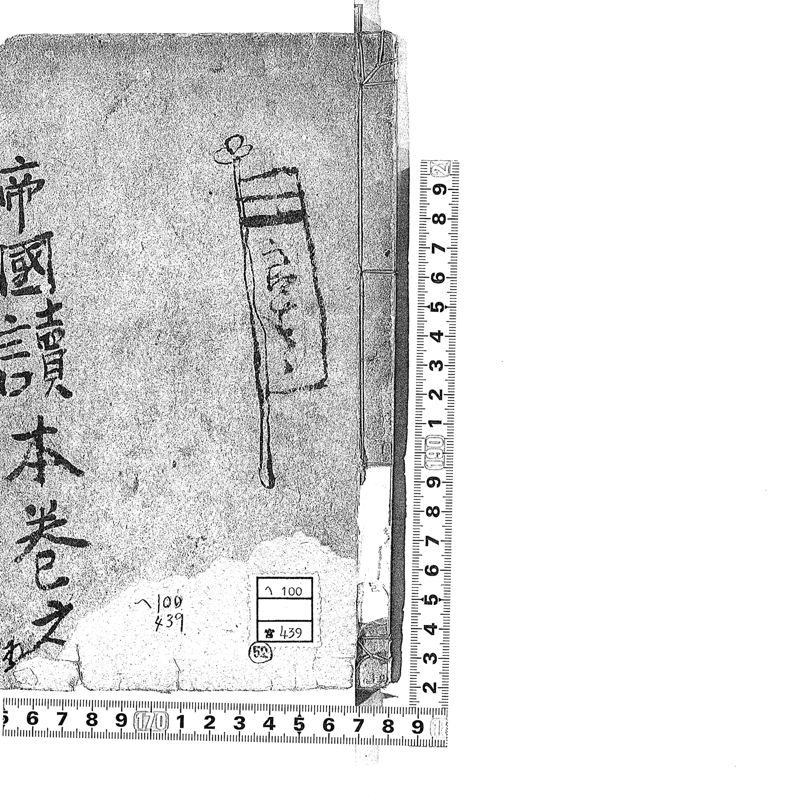 帝國讀本卷之
へ100
439
へ 100
宮 439
52
2 9 8 7 6 5 4 3 2 1 190 9 8 7 6 5 4 3 2
5 6 7 8 9 170 1 2 3 4 5 6 7 8 9